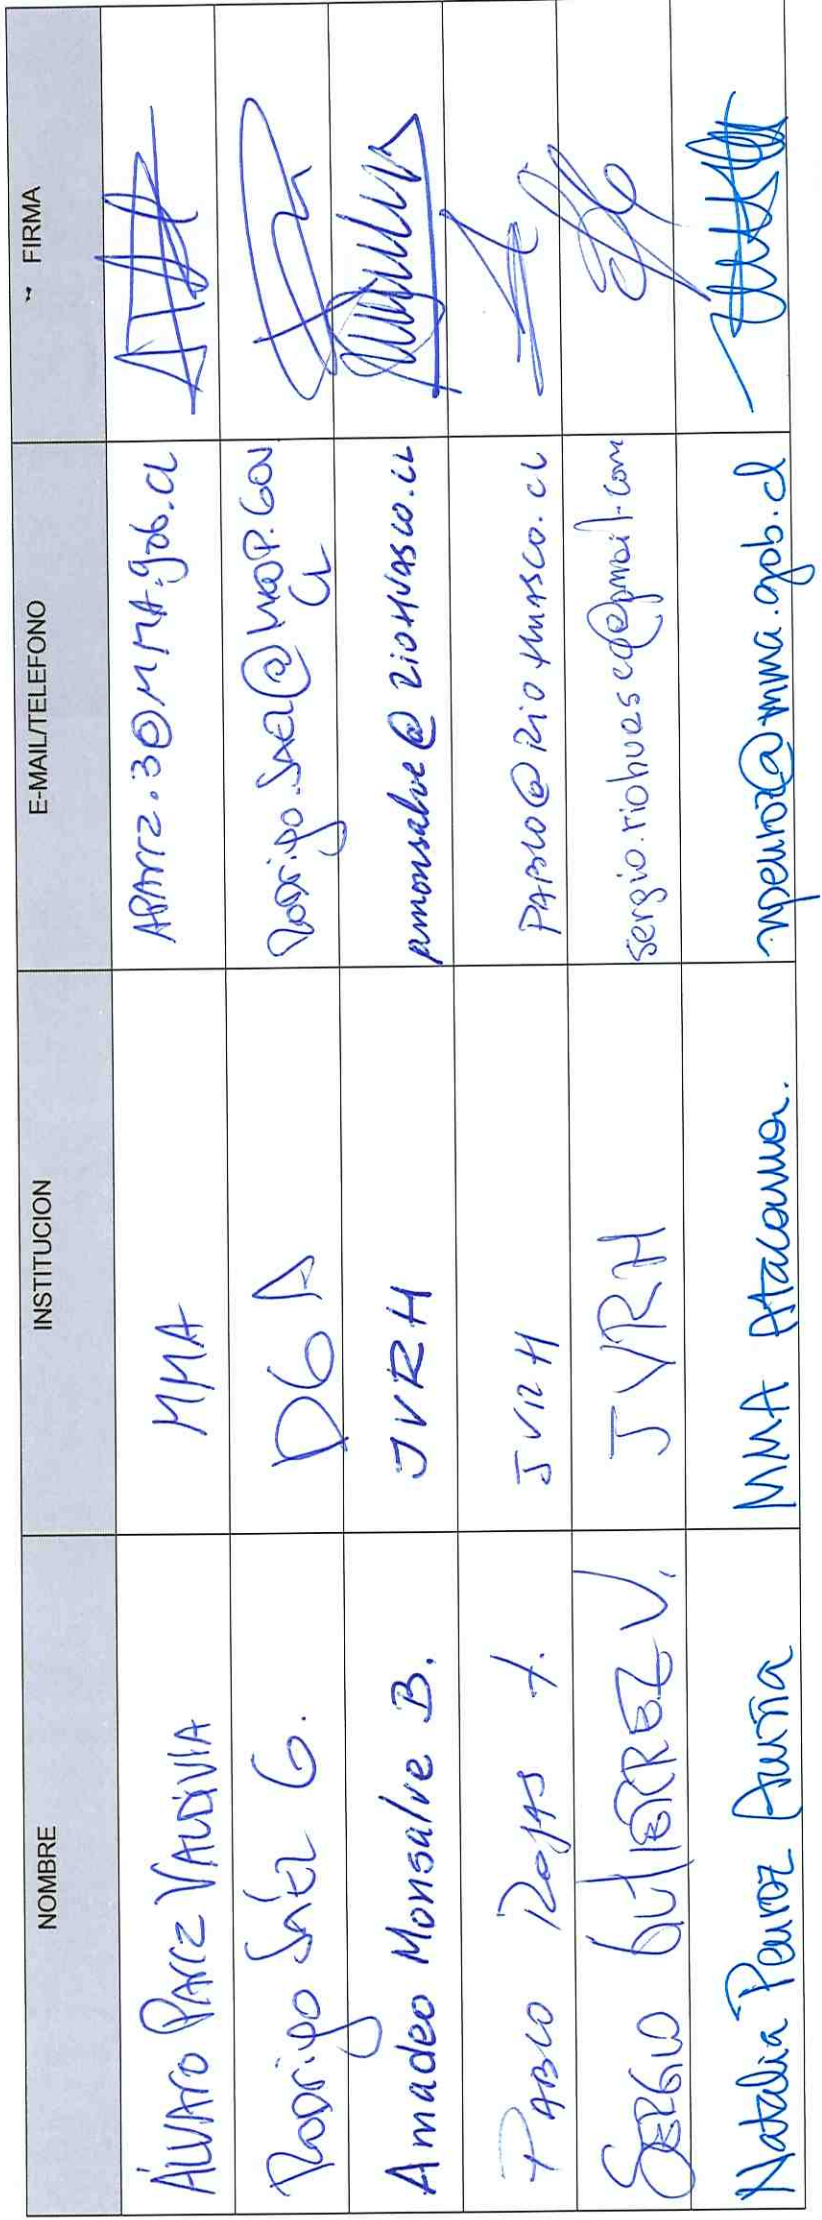 NOMBRE INSTITUCION E-MAIL/TELEFONO FIRMA
ÁLVARO PARRZ VALDIVIA MMA APARRZ.3@MMA.gob.cl
Rodrigo SAEZ G. DGA Rodrigo.SAEZ@MOP.GOV
CL
Amadeo Monsalve B. JVRH amonsalve@RIOHUASCO.CL
PABLO ROJAS JVRH PABLO@RIOHUASCO.CL
SERGIO GUTIERREZ V. JVRH sergio.riohuasco@gmail.com
Natalia Penroz Acuña MMA Atacama. npenroz@mma.gob.cl